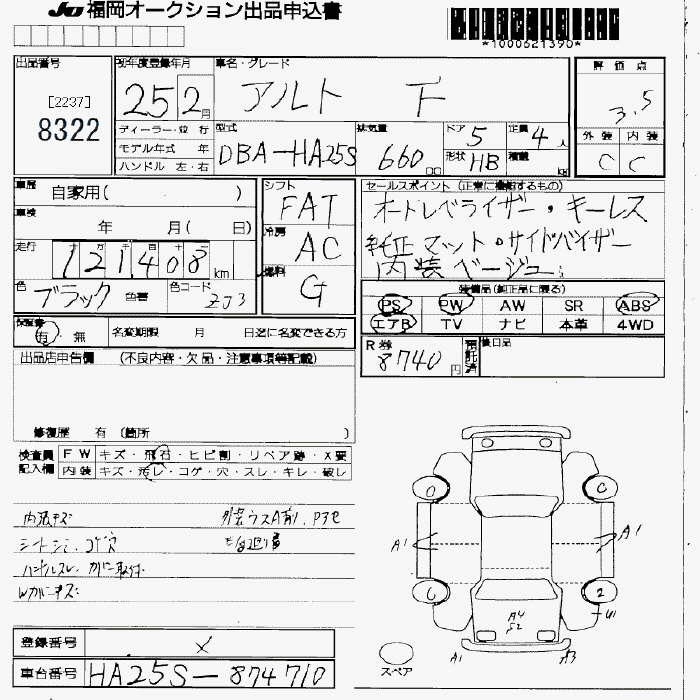 JU 福岡オークション出品申込書
*1000621390*
出品番号
[2237]
8322
初年度登録年月
25 2月
車名・グレード
アルト F
評価点
3.5
外装 内装
C C
ディーラー・並行
モデル年式 年
ハンドル 左・右
型式
DBA-HA25S
排気量
660 cc
ドア 5
形状 HB
定員 4人
積載 kg
車歴 自家用( )
車検 年 月( 日)
走行 十 万 千 百 十 一
121408 km
色 ブラック 色替 色コード ZJ3
シフト FAT
冷房 AC
燃料 G
セールスポイント (正常に機能するもの)
オートレベライザー・キーレス
純正マット・サイドバイザー
内装ベージュ
装備品(純正品に限る)
PS PW AW SR ABS
エアB TV ナビ 本革 4WD
保証書 有・無
名変期限 月 日迄に名変できる方
R券 8740円
預託済
後日品
出品店申告欄 (不良内容・欠品・注意事項等記載)
修復歴 有 (箇所 )
検査員記入欄
FW キズ・飛石・ヒビ割・リペア跡・X要
内装 キズ・汚レ・コゲ・穴・スレ・キレ・破レ
内張キズ
外装ウスA有り、Pアセ
シートシミ、コゲ穴
ハンドルスレ、カバー取付
Wカバーキズ
登録番号 ×
車台番号 HA25S-874710
A1
A1
A4
S2
U1
A1
A3
2
スペア